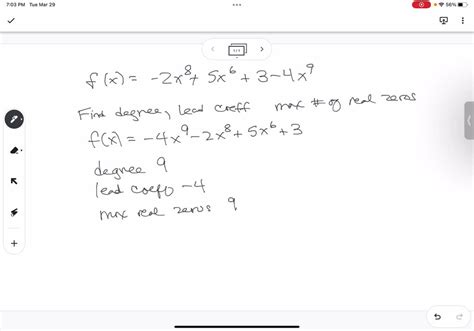 7:03 PM Tue Mar 29
56%
f(x) = -2x⁸ + 5x⁶ + 3 - 4x⁹
Find degree, lead coeff max # of real zeros
f(x) = -4x⁹ - 2x⁸ + 5x⁶ + 3
degree 9
lead coeff -4
max real zeros 9